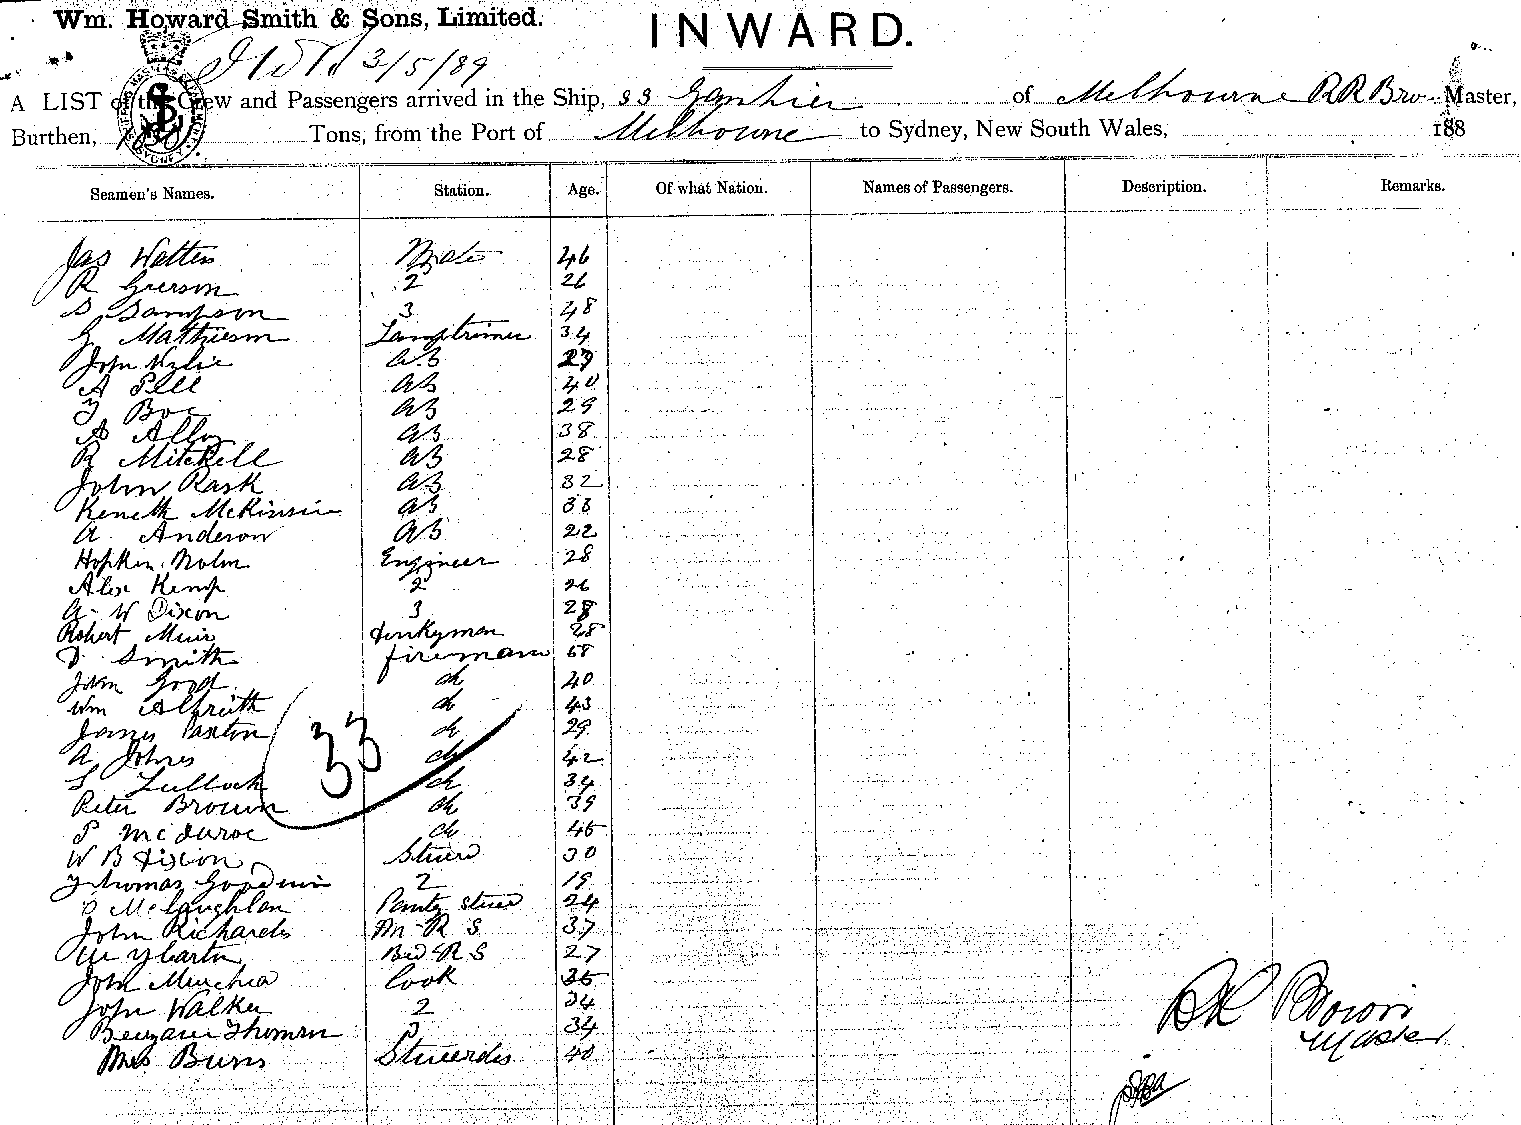 Wm. Howard Smith & Sons, Limited.
INWARD.
3/5/89
A LIST of the Crew and Passengers arrived in the Ship, SS Gambier of Melbourne R R Brown Master,
Burthen, Tons, from the Port of Melbourne to Sydney, New South Wales, 188
Seamen's Names. Station. Age. Of what Nation. Names of Passengers. Description. Remarks.
Jas Watters Mate 46
R Grierson 2 26
S Sampson 3 48
G Mathieson Lamptrimer 34
John Wylie AB
A Pell AB 40
Boe AB 29
A Alloy AB 38
R Mitchell AB 28
John Rask AB 32
Keneth McKinsie AB 33
A Anderson AB 22
Hopkin Engineer 28
Alex Kemp 2 26
A W Dixon 3 28
Robert Muir donkyman 28
D Smith fireman 58
John Good do 40
Wm Albrieth do 43
James Paxton do 29
A Johnes do 42
S Tullock do 34
Peter Brown do 39
P do 45
33
W B Dixion Stuerd 30
Thomas Goodwin 2 19
McLaughlan Pantry stuer 24
John Richards M-R S 37
Bed-R S 27
John Murchia Cook 35
John Walker 2 24
Thomson 3 34
Mrs Burns Stuerdes 40
R R Brown
Master